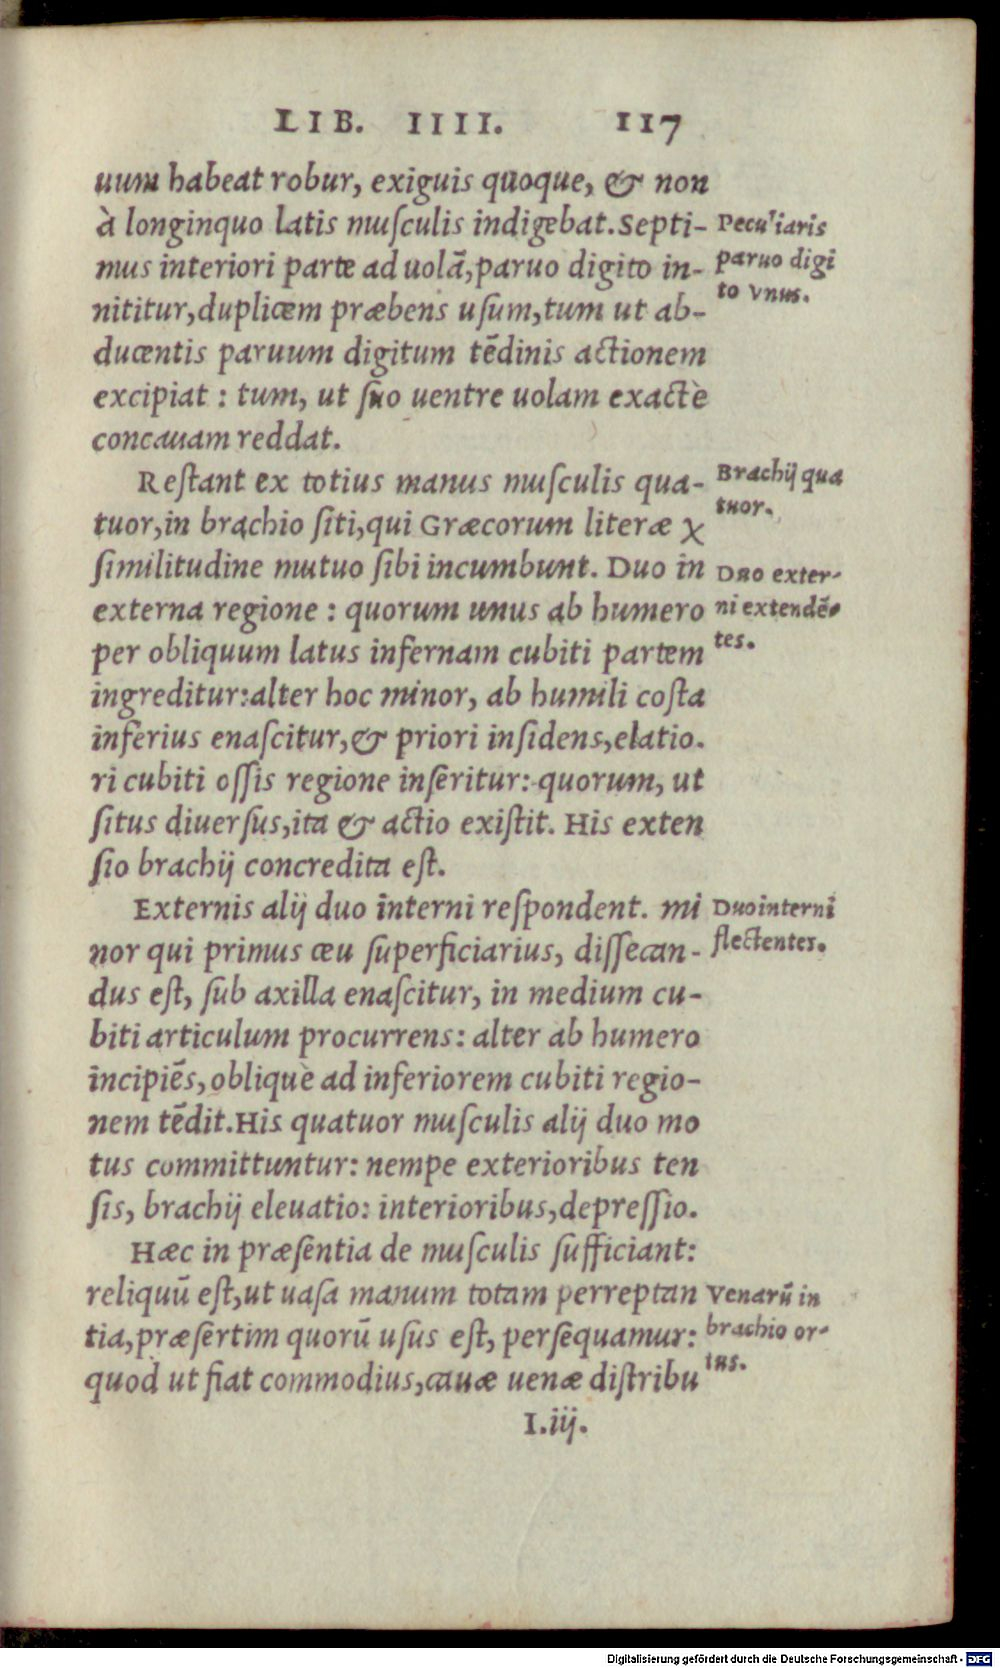 LIB. IIII. 117
uum habeat robur, exiguis quoque, & non
à longinquo latis muſculis indigebat. Septi-
mus interiori parte ad uolã, paruo digito in-
nititur, duplicem præbens uſum, tum ut ab-
ducentis paruum digitum tẽdinis actionem
excipiat : tum, ut ſuo uentre uolam exactè
concauam reddat.
Peculiaris
paruo digi
to vnus.
Reſtant ex totius manus muſculis qua-
tuor, in brachio ſiti, qui Græcorum literæ χ
ſimilitudine mutuo ſibi incumbunt. Duo in
externa regione : quorum unus ab humero
per obliquum latus infernam cubiti partem
ingreditur: alter hoc minor, ab humili coſta
inferius enaſcitur, & priori inſidens, elatio.
ri cubiti oſſis regione inſeritur: quorum, ut
ſitus diuerſus, ita & actio exiſtit. His exten
ſio brachij concredita eſt.
Brachij qua
tuor.
Duo exter-
ni extendẽ-
tes.
Externis alij duo interni reſpondent. mi
nor qui primus ceu ſuperficiarius, diſſecan-
dus eſt, ſub axilla enaſcitur, in medium cu-
biti articulum procurrens: alter ab humero
incipiẽs, obliquè ad inferiorem cubiti regio-
nem tẽdit. His quatuor muſculis alij duo mo
tus committuntur: nempe exterioribus ten
ſis, brachij eleuatio: interioribus, depreſſio.
Duo interni
flectentes.
Hæc in præſentia de muſculis ſufficiant:
reliquũ eſt, ut uaſa manum totam perreptan
tia, præſertim quorũ uſus eſt, perſequamur:
quod ut fiat commodius, cauæ uenæ diſtribu
Venarũ in
brachio or-
tus.
I.iij.
Digitalisierung gefördert durch die Deutsche Forschungsgemeinschaft - DFG